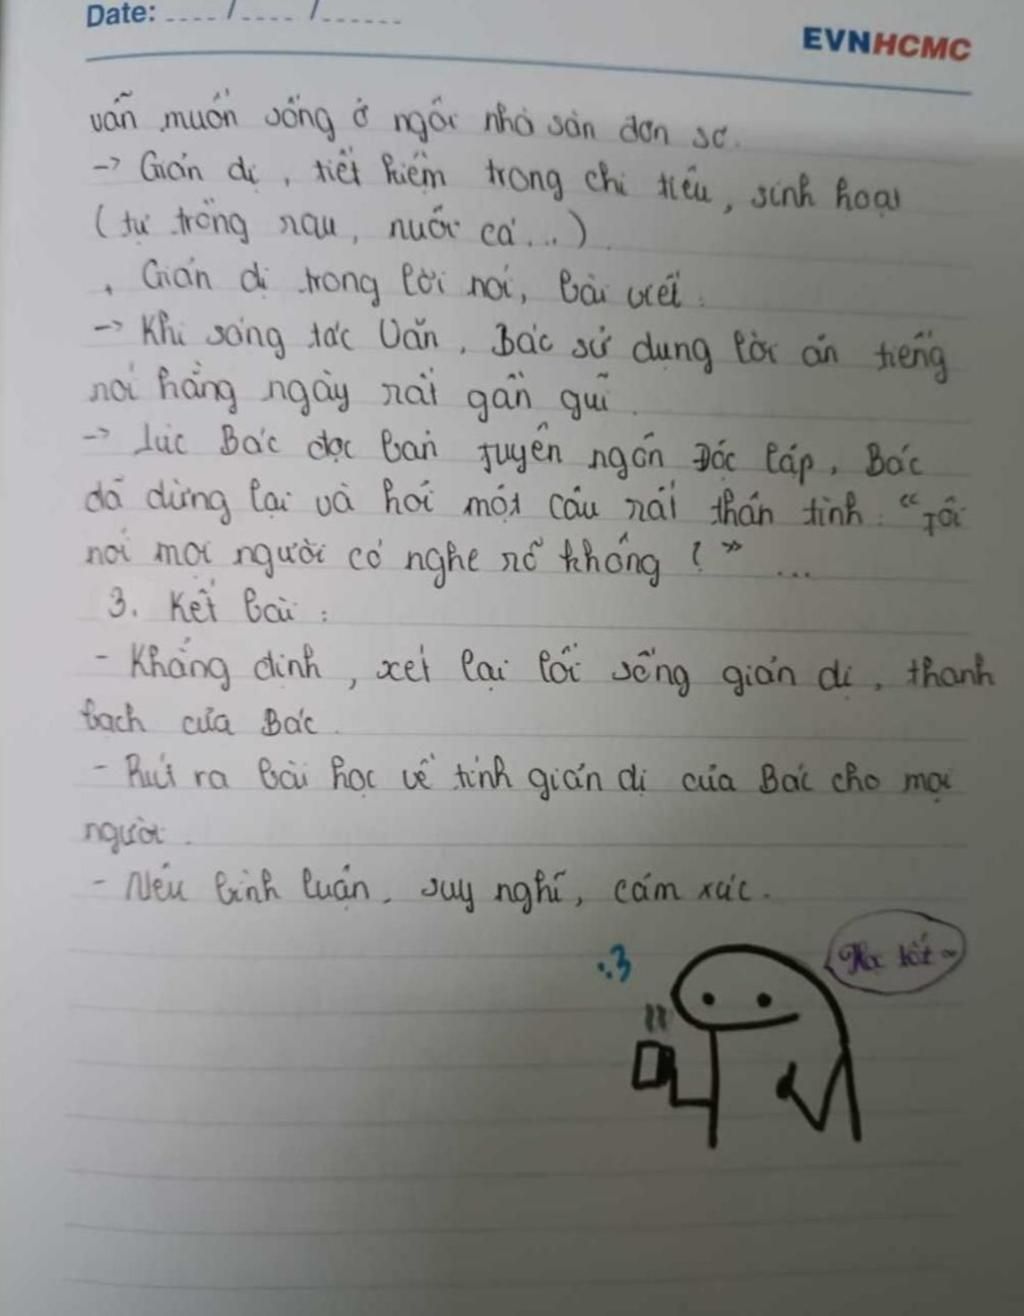 Date: ..../..../......
EVNHCMC
vẫn muốn sống ở ngôi nhà sàn đơn sơ.
-> Giản dị, tiết kiệm trong chi tiêu, sinh hoạt
(tự trồng rau, nuôi cá...)
. Giản dị trong lời nói, bài viết.
-> Khi sáng tác Văn, Bác sử dụng lời ăn tiếng
nói hằng ngày rất gần gũi.
-> Lúc Bác đọc bản Tuyên ngôn Độc lập, Bác
đã dừng lại và hỏi một câu rất thân tình: “Tôi
nói mọi người có nghe rõ không?” ...
3. Kết bài:
- Khẳng định, xét lại lối sống giản dị, thanh
bạch của Bác.
- Rút ra bài học về tính giản dị của Bác cho mọi
người.
- Nêu bình luận, suy nghĩ, cảm xúc.
:3
Học tốt~